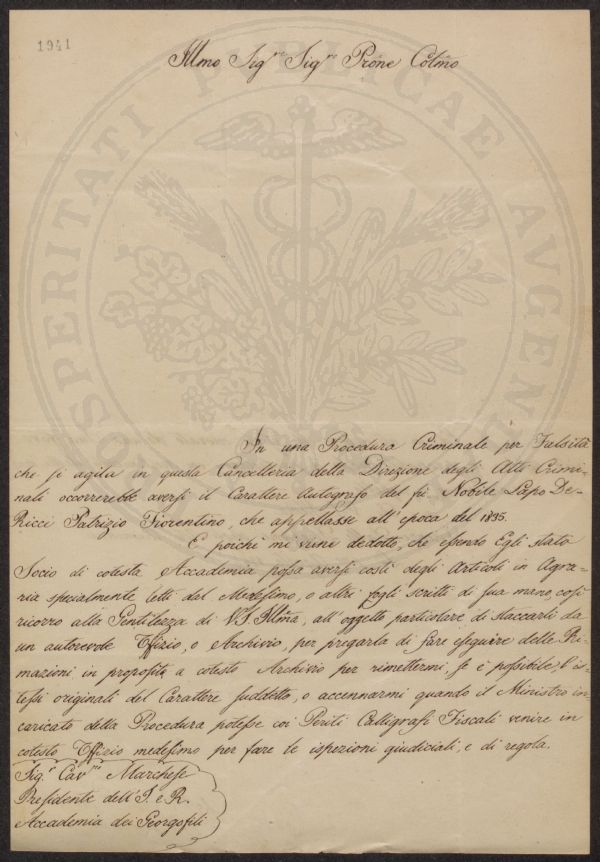 1941
Illmo Sigre Sigre Prone Colmo
In una Procedura Criminale per Falsità
che si agita in questa Cancelleria della Direzione degli Atti Crimi=
nali occorrerebbe aversi il Carattere Autografo del fù Nobile Lapo De=
Ricci Patrizio Fiorentino, che appellasse all'epoca del 1835.
E poichè mi viene dedotto, che essendo Egli stato
Socio di cotesta Accademia possa aversi costì degli Articoli in Agra=
ria specialmente letti dal Medesimo, o altri fogli scritti di sua mano così
ricorro alla Gentilezza di V.S. Illma, all'oggetto particolare, di staccarli da
un autorevole Offizio, o Archivio, per pregarla di fare eseguire delle Ri=
mazioni in proposito a cotesto Archivio per rimettermi, se è possibile, l'is=
tessi originali del Carattere suddetto, o accennarmi quando il Ministro in
caricato della Procedura potesse coi Periti Calligrafi Fiscali venire in
cotesto Offizio medesimo per fare le ispezioni giudiciali, e di regola.
Sigr Cavre Marchese
Presidente dell'I. e R.
Accademia dei Georgofili
PROSPERITATI PUBLICAE AVGENDAE